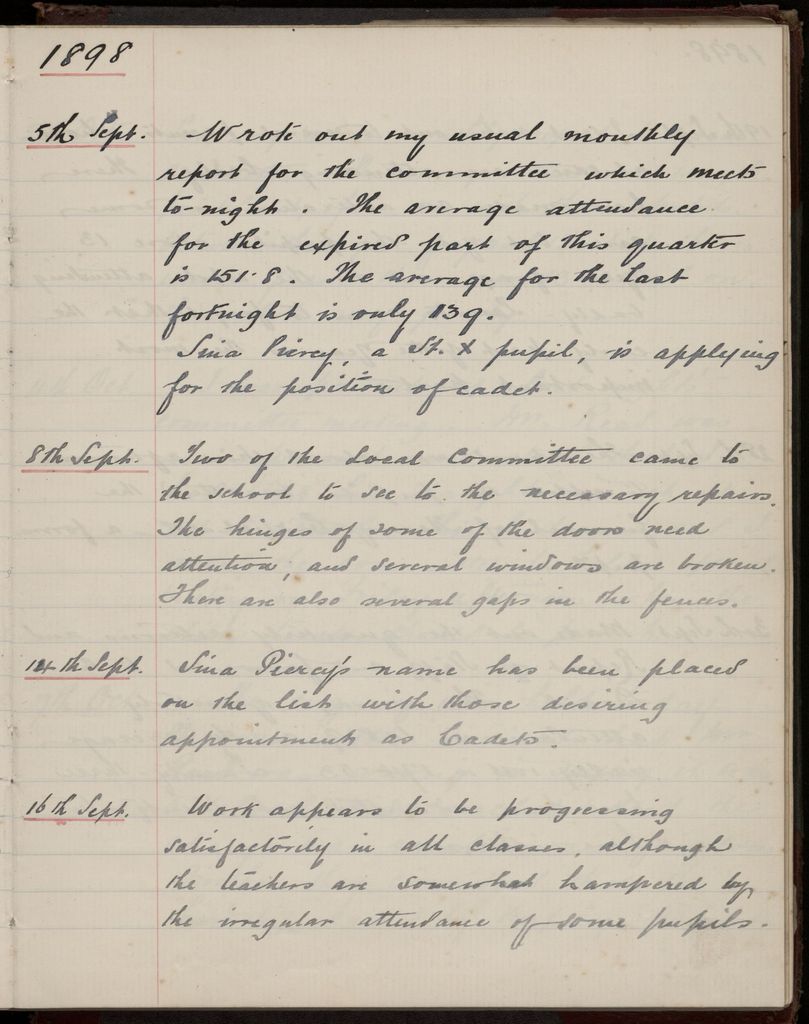 1898
5th Sept. Wrote out my usual monthly
report for the committee which meets
to-night. The average attendance
for the expired part of this quarter
is 151.8. The average for the last
fortnight is only 139.
Sina Piercy, a St. X pupil, is applying
for the position of cadet.
8th Sept. Two of the Local Committee came to
the school to see to the necessary repairs.
The hinges of some of the doors need
attention, and several windows are broken.
There are also several gaps in the fences.
14th Sept. Sina Piercy's name has been placed
on the list with those desiring
appointments as Cadets.
16th Sept. Work appears to be progressing
satisfactorily in all classes, although
the teachers are somewhat hampered by
the irregular attendance of some pupils.